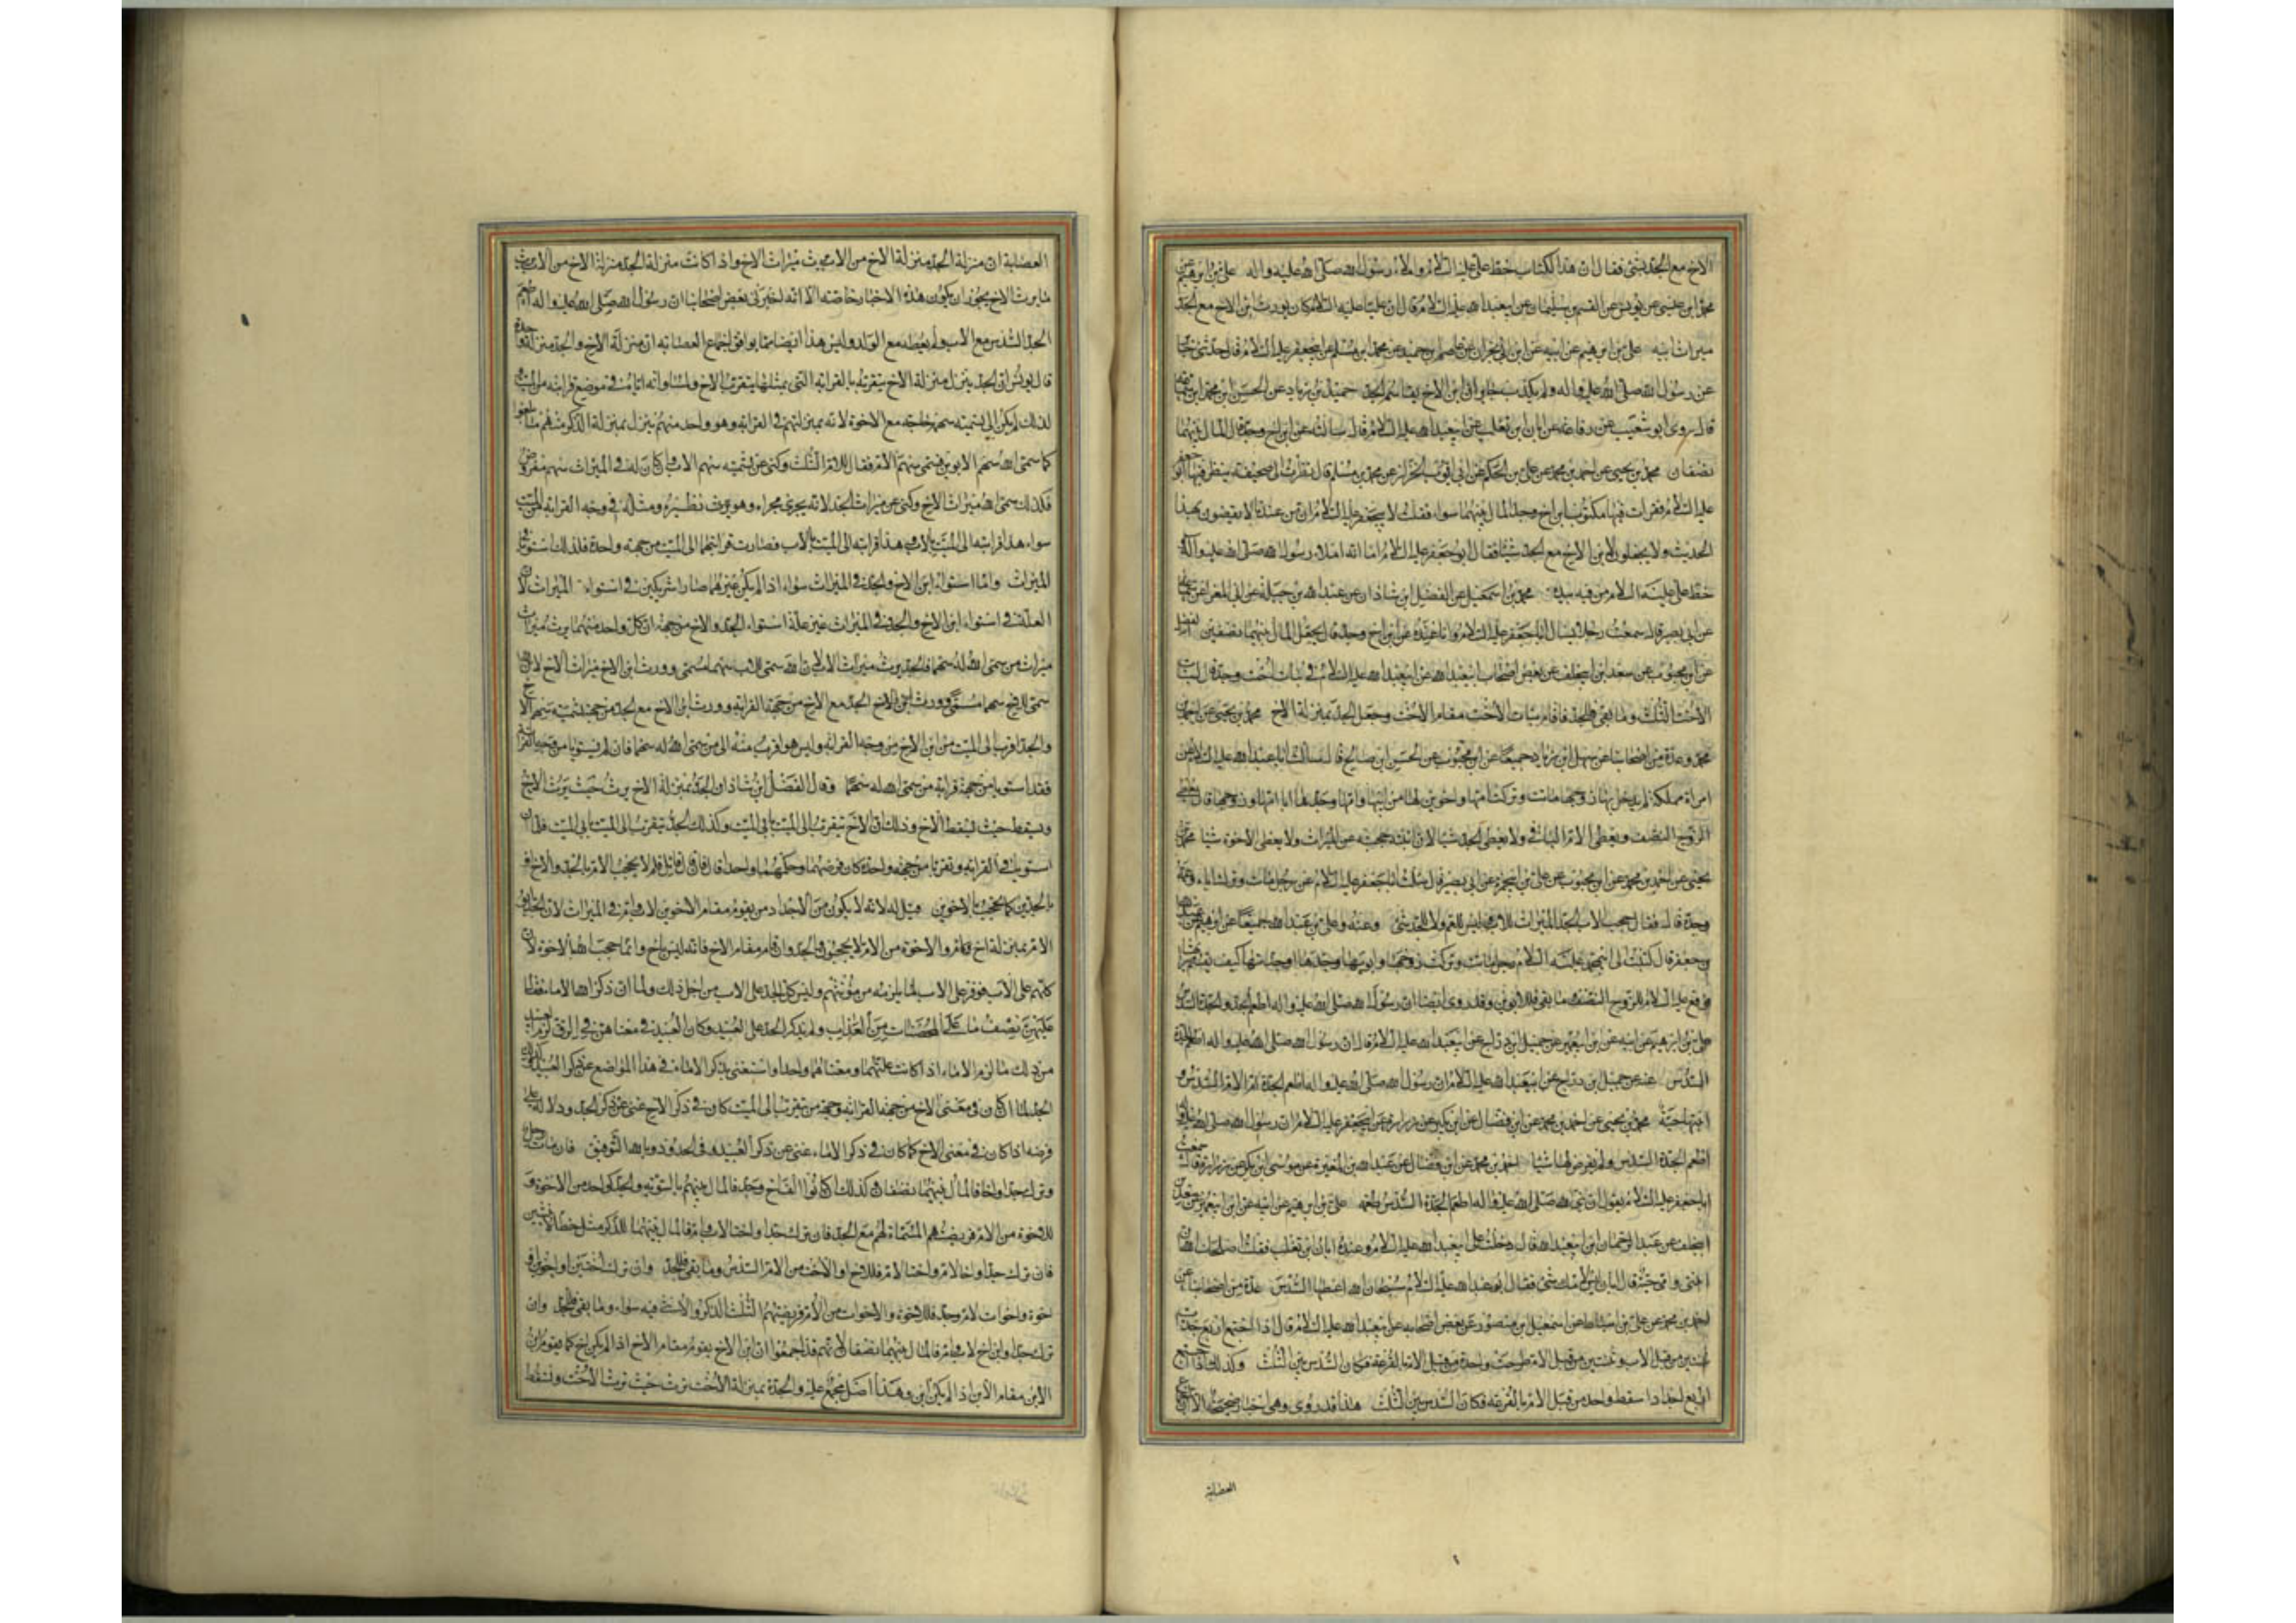 الاخ مع الجد بشئ فقال ان هذا الكتاب خط علي عليه السلام واملاء رسول الله صلى الله عليه واله علي بن ابرهيم عن
محمد ابن عيسى عن يونس عن القسم بن سليمان عن ابيعبد الله عليه السلام قال ان عليا عليه السلام كان يورث ابن الاخ مع الجد
ميراث ابيه علي بن ابرهيم عن ابيه عن ابن ابي نجران عن عاصم بن حميد عن محمد ابن مسلم عن ابيجعفر عليه السلام قال حدثني جابر
عن رسول الله صلى الله عليه واله ولم يكذب جابر ان ابن الاخ يقاسم الجد حميد بن زياد عن الحسن ابن محمد ابن سماعة
قال روى ابو شعيب عن رفاعه عن ابان ابن تغلب عن ابيعبد الله عليه السلام قال سالته عن ابن اخ وجد قال المال بينهما
نصفان محمد بن يحيى عن احمد بن محمد عن علي بن الحكم عن ابي ايوب الخزاز عن محمد بن مسلم قال نظرت الى صحيفة ينظر فيها ابو جعفر
عليه السلام فقرات فيها مكتوبا ابن اخ وجد المال بينهما سواء فقلت لابيجعفر عليه السلام ان من عندنا لا يقضون بهذا
الحديث ولا يجعلون لابن الاخ مع الجد شيئا فقال ابو جعفر عليه السلام اما انه املاء رسول الله صلى الله عليه واله
خط علي عليه السلام من فيه بيده محمد بن اسمعيل عن الفضل ابن شاذان عن عبد الله بن جبلة عن ابي المغرا عن
عن ابي بصير قال سمعت رجلا يسال ابا جعفر عليه السلام وانا عنده عن ابن اخ وجد قال يجعل المال بينهما نصفين
عن ابن محبوب عن سعد ابن ابيخلف عن بعض اصحاب ابيعبد الله عن ابيعبد الله عليه السلام في بنات اخت وجد قال لبنات
الاخت الثلث وما بقي فللجد فاقام بنات الاخت مقام الاخت وجعل الجد بمنزلة الاخ محمد بن يحيى عن احمد بن
محمد وعدة من اصحابنا عن سهل ابن زياد جميعا عن ابن محبوب عن الحسن ابن صالح قال سالت ابا عبد الله عليه السلام عن
امراة مملكة لم يدخل بها زوجها ماتت وتركت امها واخوين لها من ابيها وامها وجدها ابا امها وزوجها قال يعطى
الزوج النصف ويعطى الام الباقي ولا يعطى الجد شيئا لان ابنته حجبته عن الميراث ولا يعطى الاخوة شيئا محمد بن
يحيى عن احمد بن محمد عن ابن محبوب عن علي بن ابيحمزة عن ابي بصير قال سالت ابا جعفر عليه السلام عن رجل مات وترك اباه وعمه
وجده قال فقال حجب الاب الجد الميراث للاب وليس للعم ولا للجد شئ وعنه وعلي بن عبد الله جميعا عن ابرهيم عن
بن جعفر قال كتبت الى ابيمحمد عليه السلام رجل مات وتركت زوجها وابويها وجدها او جدتها كيف يقسم ميراثها
فوقع عليه السلام للزوج النصف وما بقي فللابوين وقد روى ايضا ان رسول الله صلى الله عليه واله اطعم الجد والجدة السدس
علي بن ابرهيم عن ابيه عن ابن ابيعمير عن جميل ابن دراج عن ابيعبد الله عليه السلام قال ان رسول الله صلى الله عليه واله اطعم الجدة
السدس عنه عن جميل بن دراج عن ابيعبد الله عليه السلام ان رسول الله صلى الله عليه واله اطعم الجدة ام الام السدس و
ابنتها حية محمد بن يحيى عن احمد بن محمد عن ابن فضال عن ابن بكير عن زرارة عن ابيجعفر عليه السلام ان رسول الله صلى الله عليه واله
اطعم الجدة السدس ولم يفرض لها شيئا احمد بن محمد عن ابن فضال عن عبد الله بن المغيرة عن موسى ابن بكر عن زرارة قال سمعت
ابا جعفر عليه السلام يقول ان نبي الله صلى الله عليه واله اطعم الجدة السدس طعمة علي بن ابرهيم عن ابيه عن ابن ابيعمير عن سعد بن
ابيخلف عن عبد الرحمان ابن ابيعبد الله قال دخلت على ابيعبد الله عليه السلام وعنده ابان ابن تغلب فقلت اصلحك الله ان
ابنتي وامي حية فقال ابان ليس لامك شئ فقال ابو عبد الله عليه السلام سبحان الله اعطها السدس عدة من اصحابنا عن
احمد بن محمد عن علي بن اسباط عن اسمعيل بن منصور عن بعض اصحابه عن ابيعبد الله عليه السلام قال اذا اجتمع اربع جدات
ثنتين من قبل الاب وثنتين من قبل الام طرحت واحدة من قبل الام بالقرعة فكان السدس بين الثلث وكذلك اذا اجتمع
اربع اجداد اسقط واحد من قبل الام بالقرعة فكان السدس بين الثلث هذا قد روى وهي اخبار صحيحة الا ان اجماع
العصابة
العصابة ان منزلة الجد منزلة الاخ من الاب يرث ميراث الاخ واذا كانت منزلة الجد منزلة الاخ من الاب يرث
ما يرث الاخ يجوز ان يكون هذه الاخبار خاصة الا انه اخبرني بعض اصحابنا ان رسول الله صلى الله عليه واله اطعم
الجد السدس مع الاب ولم يعطه مع الولد وليس هذا ايضا مما يوافق اجماع العصابه ان منزلة الاخ والجد منزلة واحدة
قال يونس ان الجد ينزل منزلة الاخ بتقربه بالقرابه التي بمثلها يتقرب الاخ ولمساواته اياه في موضع قرابته من الميت و
لذلك لم يكن الى تسمية سهمه حاجة مع الاخوة لانه بمنزلتهم في القرابه وهو واحد منهم ينزل بمنزلة الذكر منهم ما بلغوا
كما سمى الله سهم الابوين فسمى سهم الام فقال للام الثلث وكنى عن تسميه سهم الاب وان كان له في الميراث سهم مفروض
فكذلك سمى الله ميراث الاخ وكنى عن ميراث الجد لانه يجري مجراه وهو يورث نظيره ومثله في وجه القرابه الى الميت
سواء هذا قرابته الى الميت بالاب وهذا قرابته الى الميت بالاب فصارت قرابتهما الى الميت من جهه واحدة فلذلك استويا في
الميراث واما استواء ابن الاخ والجد في الميراث سواء اذا لم يكن غيرهما صارا شريكين في استواء الميراث لان
العلة في استواء ابن الاخ والجد في الميراث غير علة استواء الجد والاخ من جهة ان كل واحد منهما يرث ميراث
ميراث من سمى الله له سهما فالجد يرث ميراث الاب لان الله سمى للاب سهما مسمى وورث ابن الاخ ميراث الاخ لان الله
سمى للاخ سهما مسمى وورث ابن الاخ الجد مع الاخ من جهة القرابه وورث ابن الاخ مع الجد من جهة تسمية سهم الاخ
والجد اقرب الى الميت من ابن الاخ من وجه القرابه وليس هو اقرب منه الى من سمى الله له سهما فان لم يستويا من وجه القرابة
فقد استويا من جهة قرابة من سمى الله له سهما وقال الفضل ابن شاذان الجد بمنزلة الاخ يرث حيث يرث الاخ
ويسقط حيث يسقط الاخ وذلك ان الاخ يتقرب الى الميت بابي الميت وكذلك الجد يتقرب الى الميت بابي الميت فلما ان
استويا في القرابه وتقربا من جهه واحدة كان فرضهما وحكمهما واحدا قال فان قال قائل فلم لا يحجب الام بالجد والاخ او
بالجدين كما تحجب بالاخوين قيل له لانه لا يكون من الاجداد من يقوم مقام الاخوين لاب وام في الميراث
الام بمنزلة اخ لام والاخوة من الام لا يحجبون والجد وان قام مقام الاخ فانه ليس باخ وانما حجب الله بالاخوة لان
كلهم على الاب فوفر على الاب لما يلزمه من مؤنتهم وليس كل الجد على الاب من اجل ذلك ولما ان ذكر الله الاماء فقال
عليهن نصف ما على المحصنات من العذاب ولم يذكر الحد على العبيد وكان العبيد في معناهن في الرق لزم العبيد
من ذلك ما لزم الاماء اذا كانت علتهما ومعناهما واحدا واستغنى بذكر الاماء في هذا الموضع عن ذكر العبيد وكذلك
الجد لما ان كان في معنى الاخ من جهة القرابه وجهة من يتقرب الى الميت كان في ذكر الاخ غنى عن ذكر الجد ودلالة على
فرضه اذا كان في معنى الاخ كما كان في ذكر الاماء غنى عن ذكر العبيد في الحدود وبالله التوفيق فان مات رجل
وترك جدا واخا فالمال بينهما نصفان وكذلك ان كانوا الف اخ وجد فالمال بينهم بالسويه والجد كواحد من الاخوة و
للاخوة من الام فريضتهم المسماة لهم مع الجد فان ترك جدا واختا لاب وام فالمال بينهما للذكر مثل حظ الانثيين
فان ترك جدا واخا لام واختا لام فللاخ او الاخت من الام السدس وما بقي فللجد وان ترك اختين او اخوين او
اخوة واخوات لام وجد فللاخوة والاخوات من الام فريضتهم الثلث الذكر والانثى فيه سواء وما بقي فللجد وان
ترك جدا وابن اخ لاب وام فالمال بينهما نصفان لانهم قد اجمعوا ان ابن الاخ يقوم مقام الاخ اذا لم يكن اخ كما يقوم ابن
الابن مقام الابن اذا لم يكن ابن وهذا اصل مجمع عليه والجدة بمنزلة الاخت ترث حيث ترث الاخت وتسقط